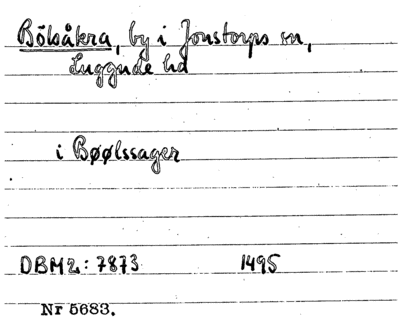 Bölsåkra, by i Jonstorps sn,
Luggude hd
i Bøølssager
DBM2: 7873 1495
Nr 5683.